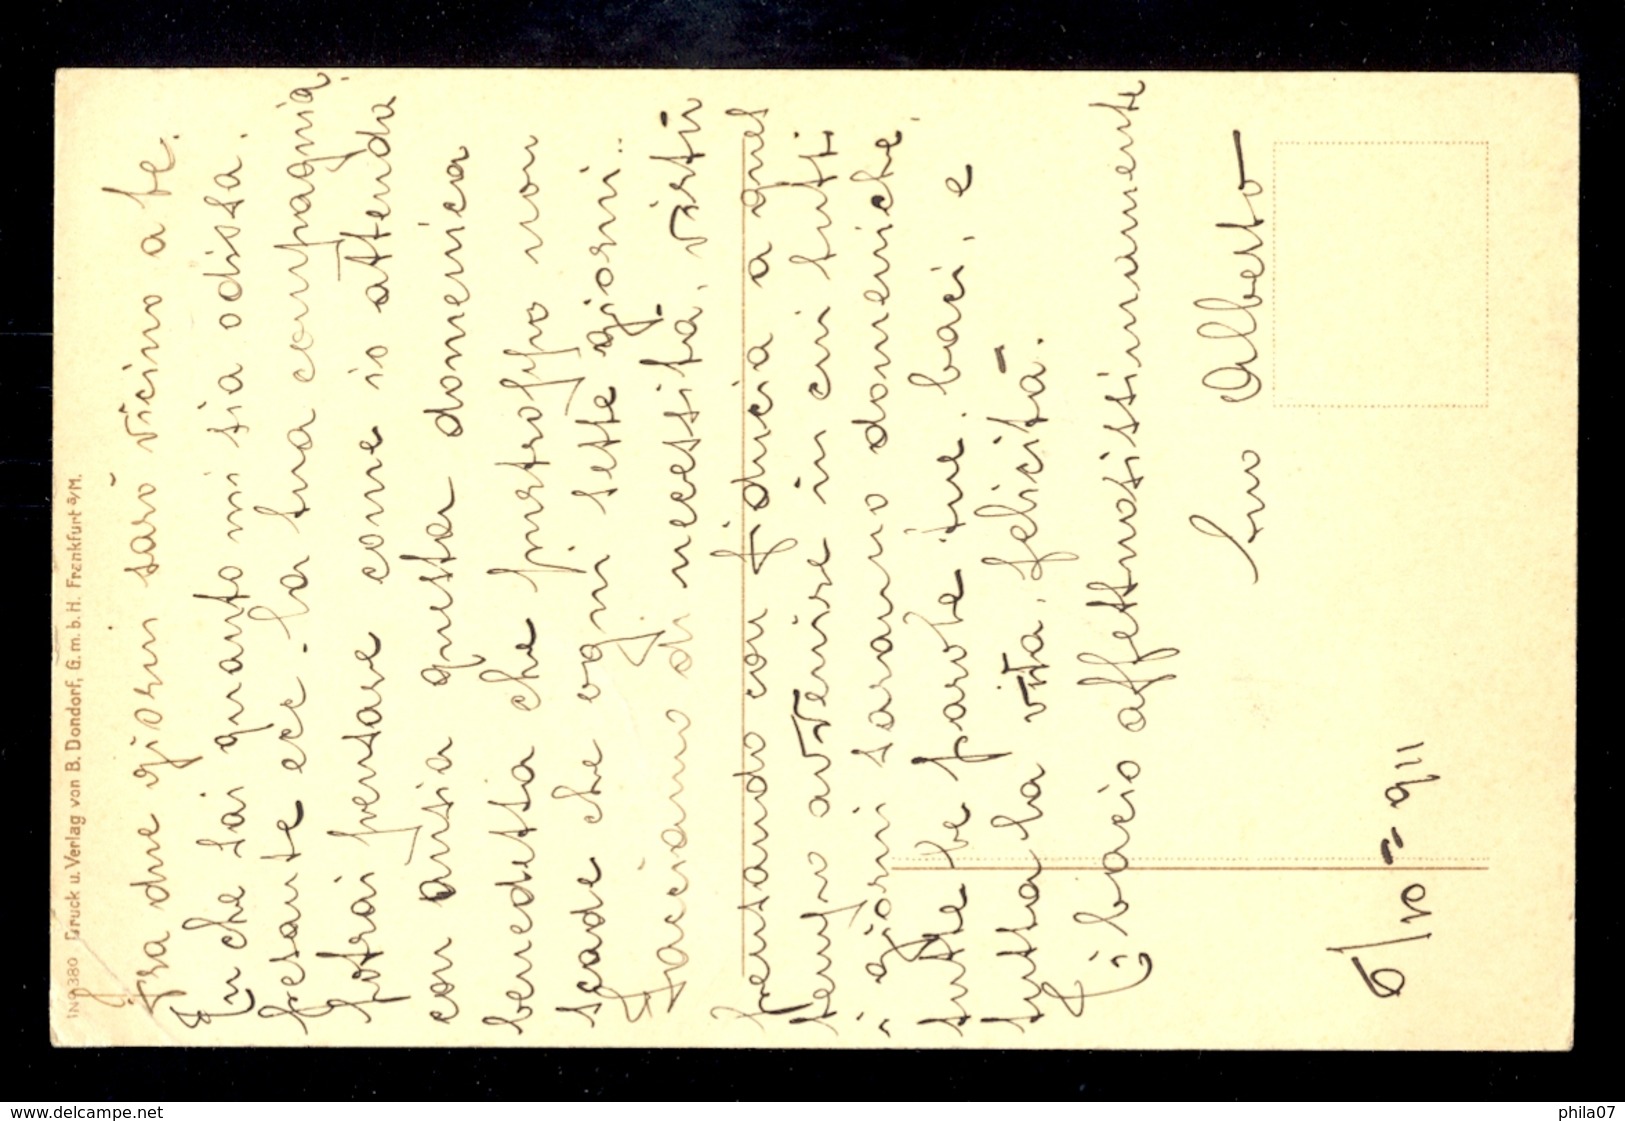 No 380 Druck u. Verlag von B. Dondorf, G.m.b.H. Frankfurt a/M.
Fra due giorni sarò vicino a te.
Tu che sai quanto mi sia odiosa,
pesante ecc. la tua compagnia,
potrai pensare come io attenda
con ansia questa domenica
benedetta che purtroppo non
scade che ogni sette giorni..
Facciamo di necessità, virtù
pensando con fiducia a quel
tempo avvenire in cui tutti
i giorni saranno domeniche,
tutte le parole tue, baci, e
tutta la vita, felicità.
Ti bacio affettuosissimamente
tuo Alberto
6/10=911
www.delcampe.net
phila07